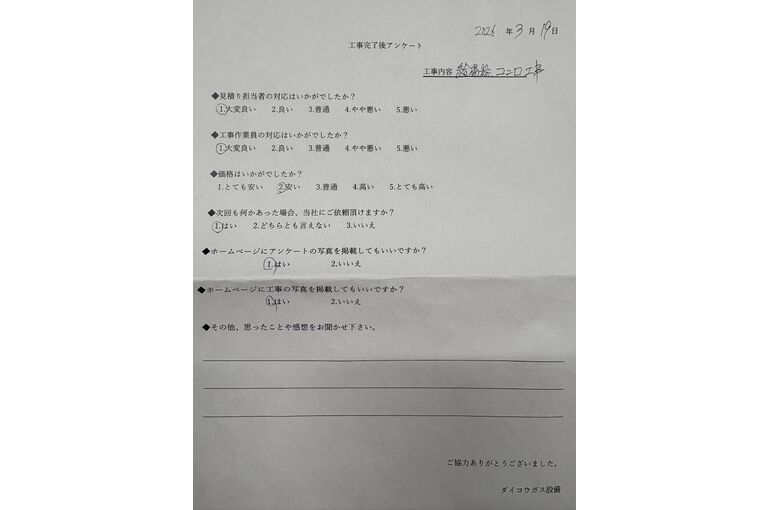 2026 年 3 月 19 日
工事完了後アンケート
工事内容 給湯器 コンロ工事
◆見積り担当者の対応はいかがでしたか？
1.大変良い 2.良い 3.普通 4.やや悪い 5.悪い
◆工事作業員の対応はいかがでしたか？
1.大変良い 2.良い 3.普通 4.やや悪い 5.悪い
◆価格はいかがでしたか？
1.とても安い 2.安い 3.普通 4.高い 5.とても高い
◆次回も何かあった場合、当社にご依頼頂けますか？
1.はい 2.どちらとも言えない 3.いいえ
◆ホームページにアンケートの写真を掲載してもいいですか？
1.はい 2.いいえ
◆ホームページに工事の写真を掲載してもいいですか？
1.はい 2.いいえ
◆その他、思ったことや感想をお聞かせ下さい。
ご協力ありがとうございました。
ダイコウガス設備